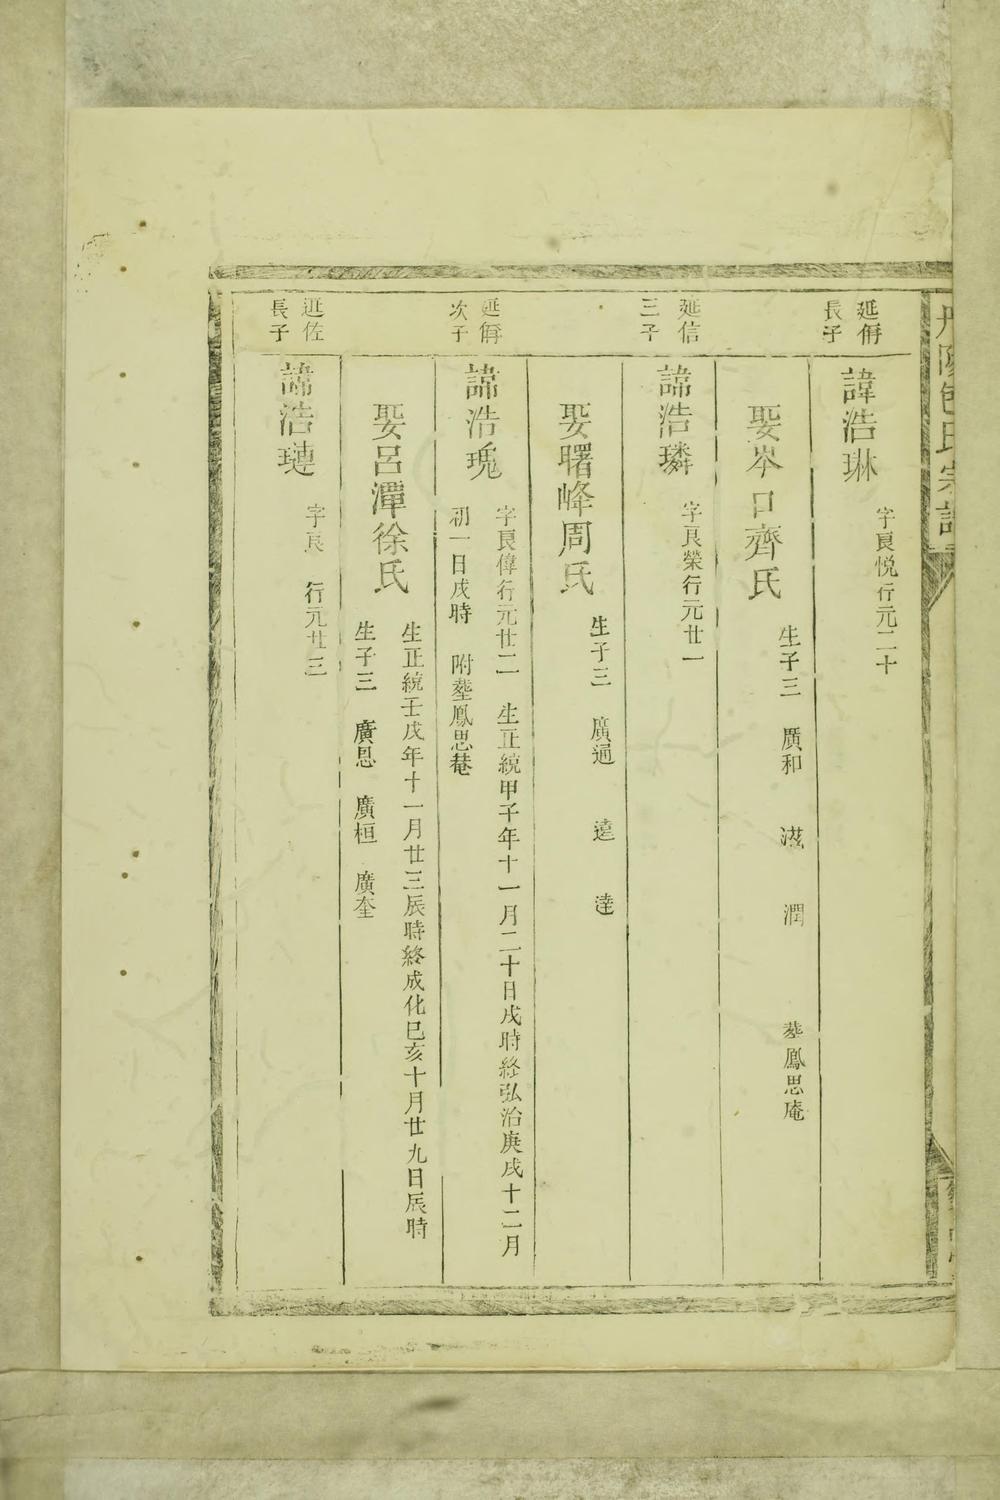 延侢
長子
諱浩琳
字良悦行元二十
娶岑口齊氏
生子三 廣和 滋 潤 塟鳳思庵
延信
三子
諱浩璘
字良榮行元廿一
娶曙峰周氏
生子三 廣通 遠 達
次子
諱浩
字良偉行元廿二 生正統甲子年十一月二十日戌時終弘治庚戌十二月
初一日戌時 附塟鳳思菴
娶呂潭徐氏
生正統壬戌年十一月廿三辰時終成化已亥十月廿九日辰時
生子三 廣恩 廣桓 廣奎
延佐
長子
諱浩璉
字良 行元廿三